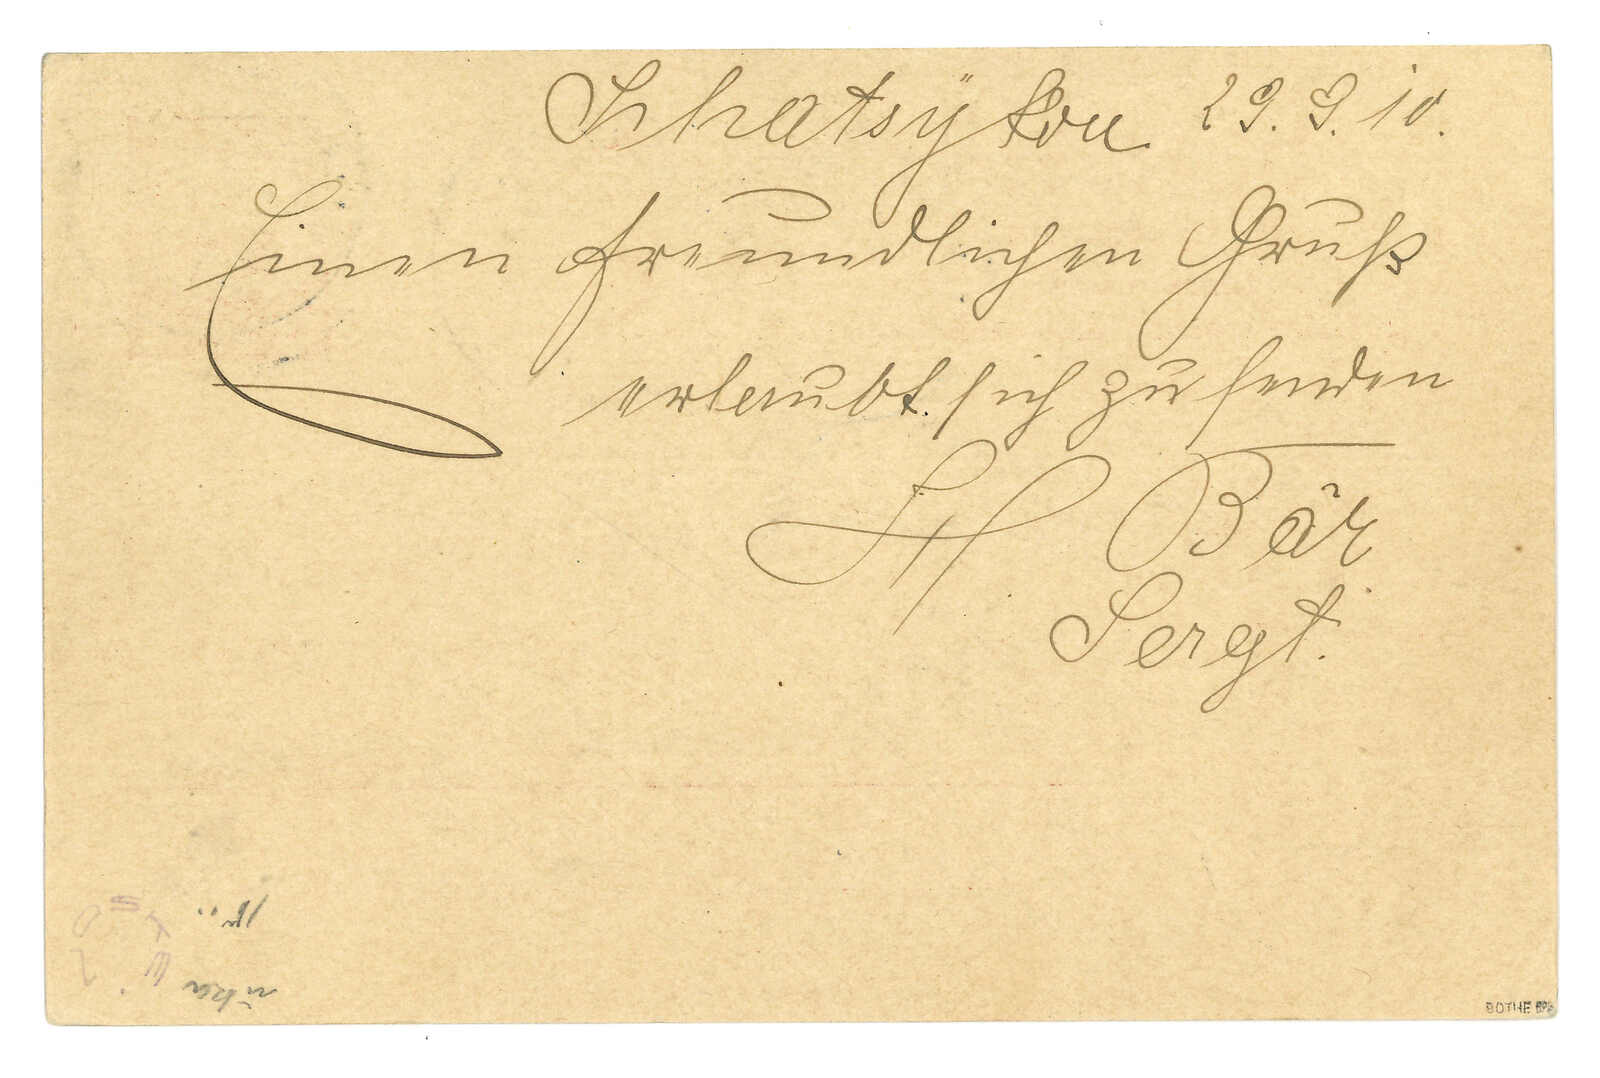 Schatsÿkou 29.9.10.
Einen freundlichen Gruß
erlaubt sich zu senden
H Bär
Sergt.
BOTHE BPP